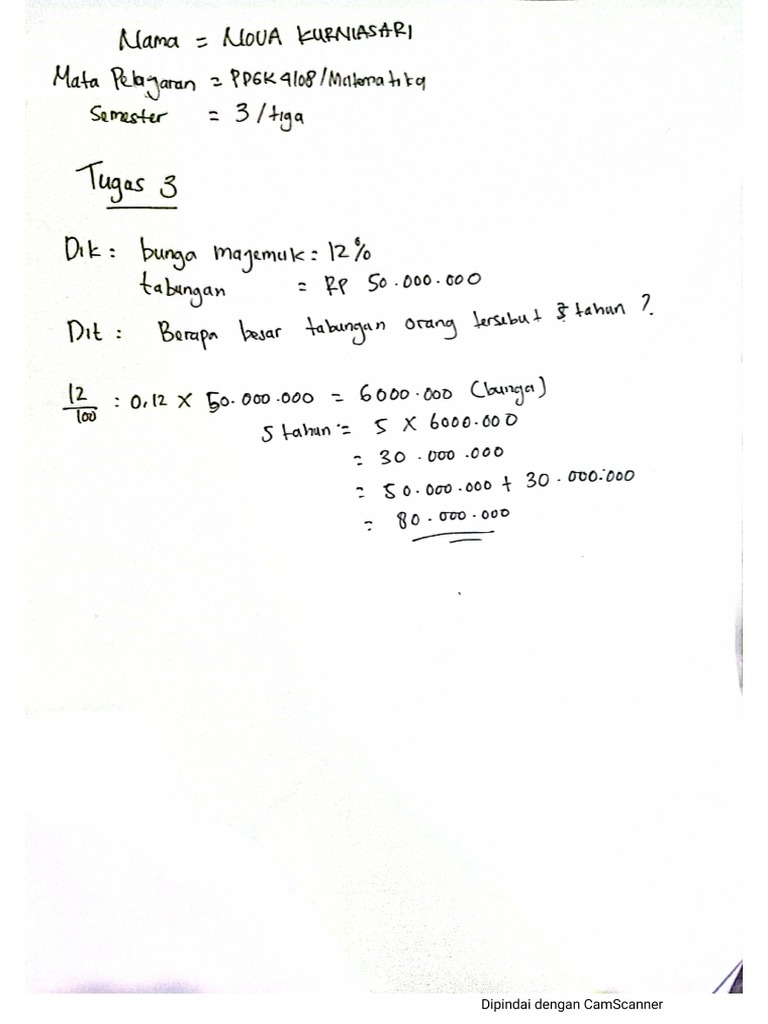 Nama = NOVA KURNIASARI
Mata Pelajaran = PDGK4108/Matematika
Semester = 3/tiga
Tugas 3
Dik : bunga majemuk = 12%
tabungan = RP 50.000.000
Dit : Berapa besar tabungan orang tersebut 5 tahun ?
12/100 : 0,12 x 50.000.000 = 6000.000 (bunga)
5 tahun = 5 x 6000.000
= 30.000.000
= 50.000.000 + 30.000.000
= 80.000.000
Dipindai dengan CamScanner